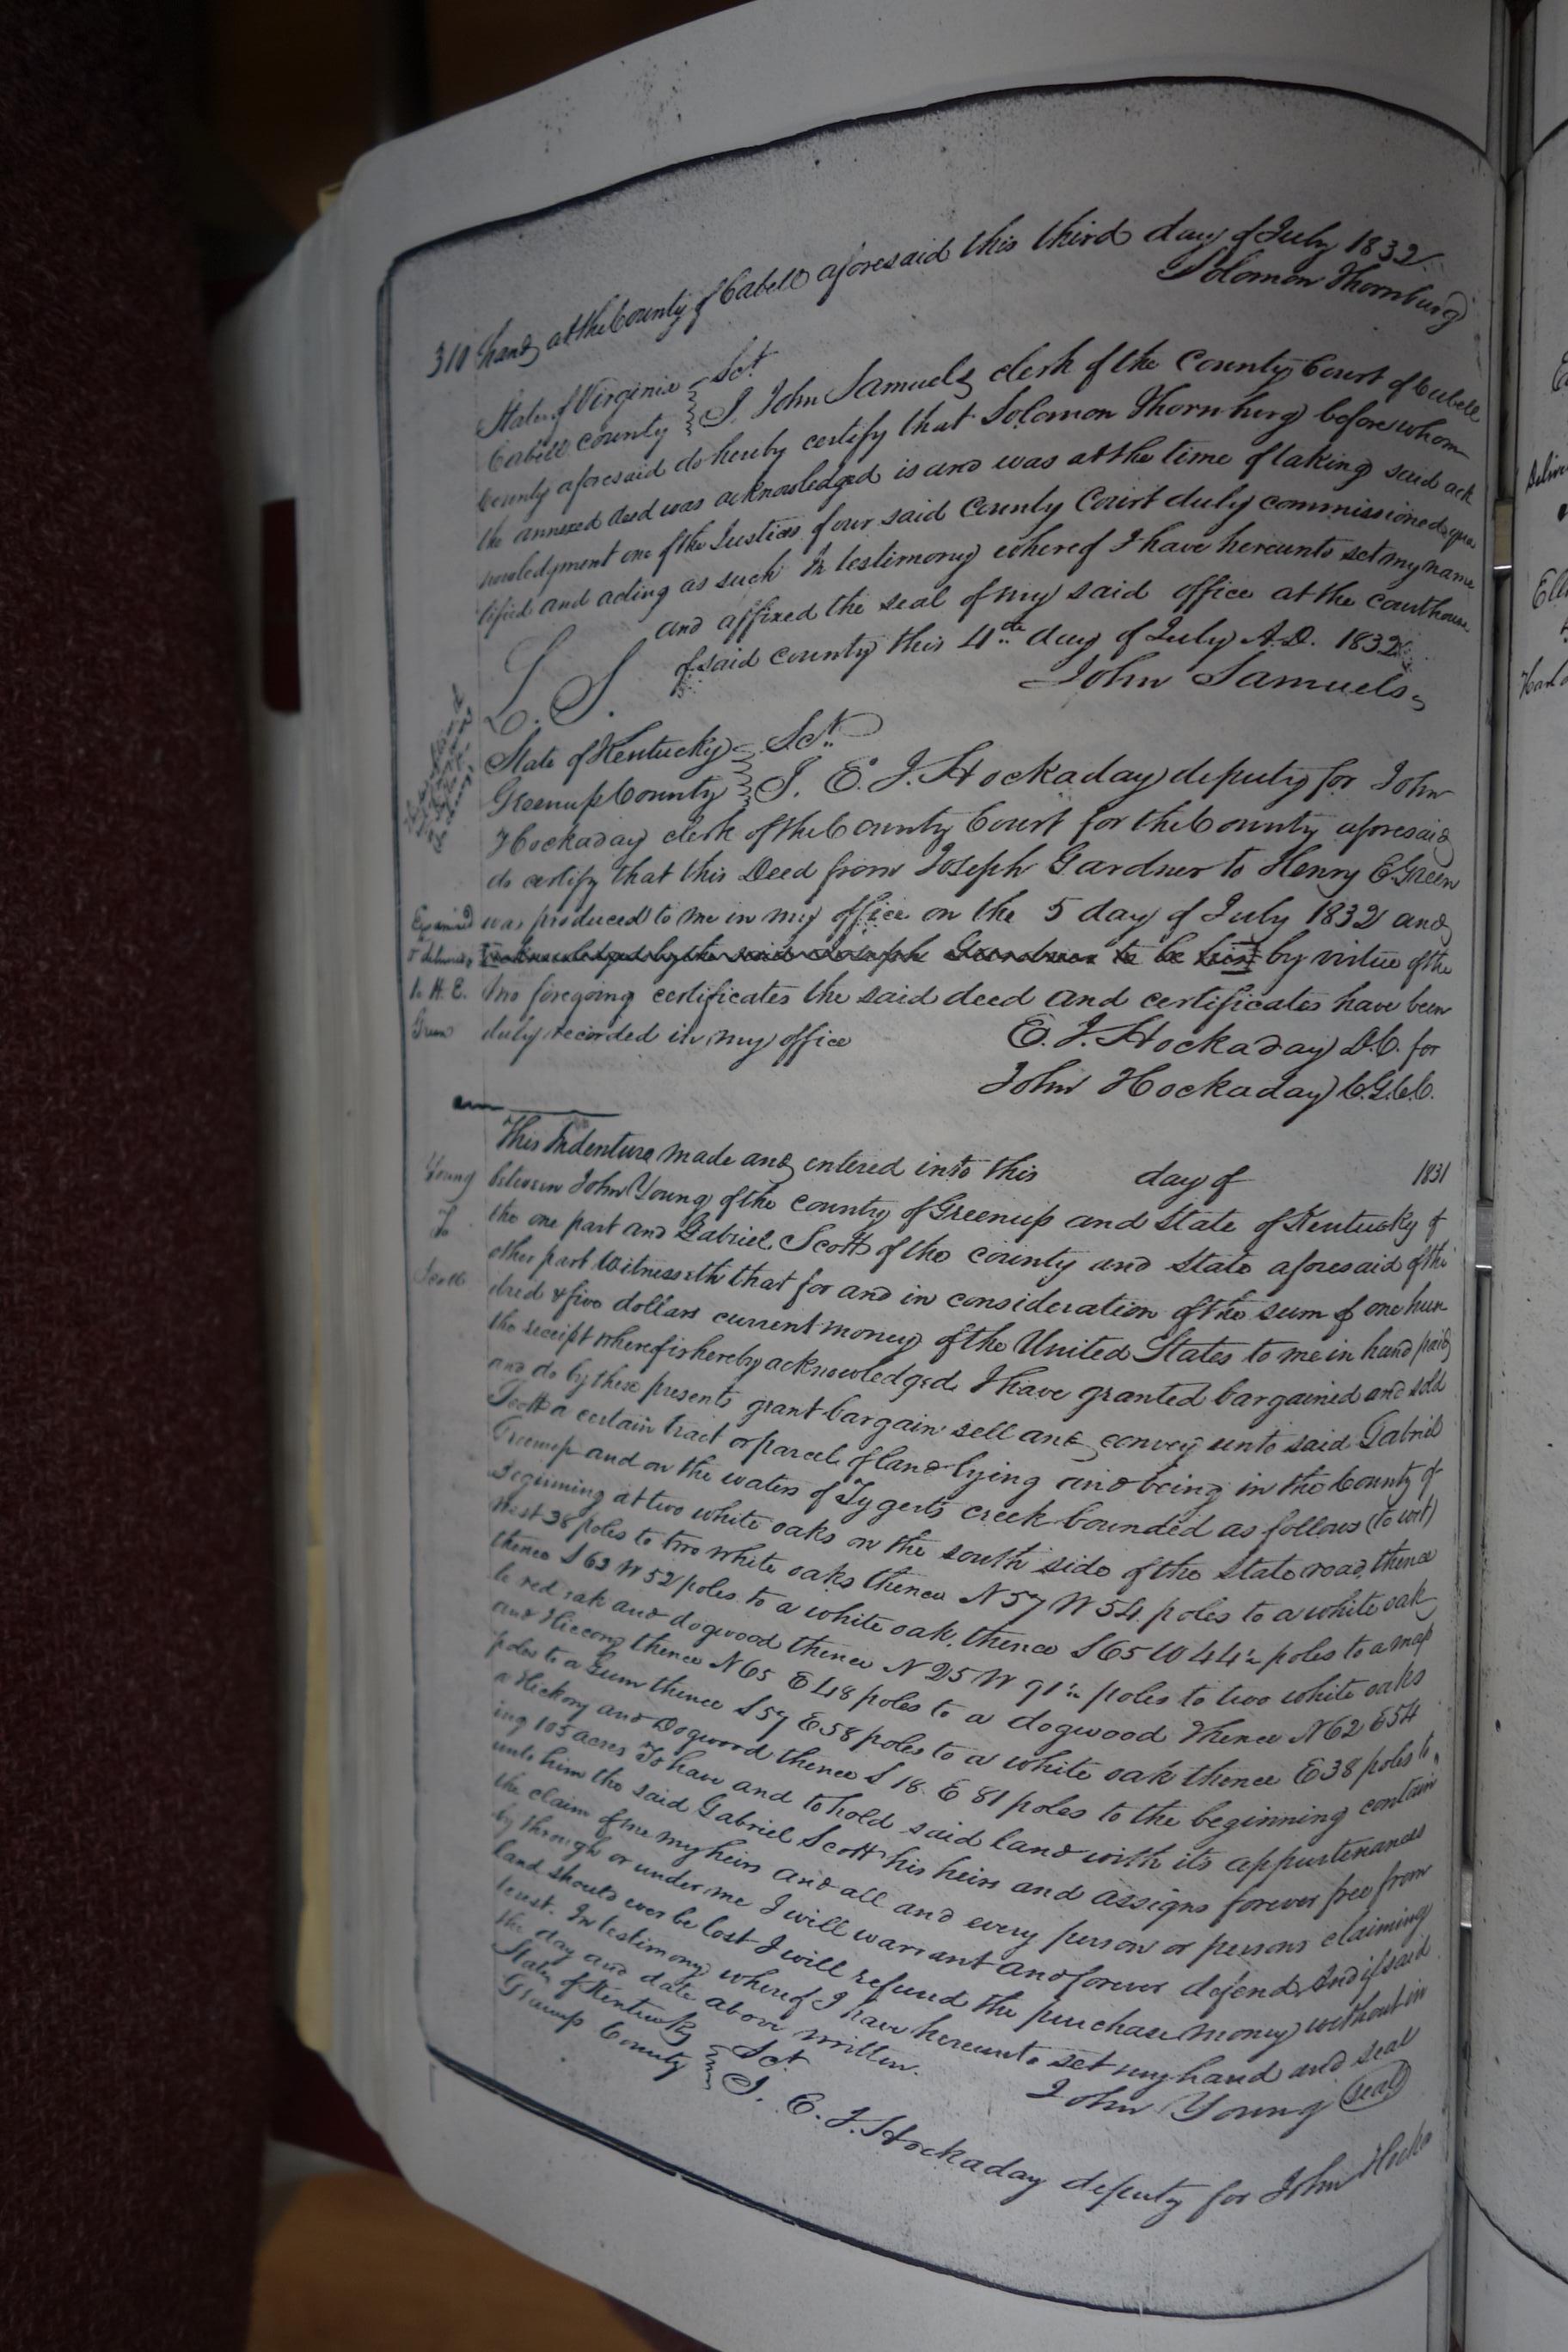 310 hand at the County of Cabell aforesaid this third day of July 1832
Solomon Thornburg
State of Virginia Sct
Cabell County I John Samuels clerk of the County Court of Cabell
County aforesaid do hereby certify that Solomon Thornburg before whom
the annexed deed was acknowledged is and was at the time of taking said ack
nowledgment one of the Justices of our said County Court duly commissioned qua
lified and acting as such In testimony whereof I have hereunto set my name
and affixed the seal of my said office at the courthouse
L. S. of said county this 4th day of July A.D. 1832
John Samuels
State of Kentucky Sct.
Greenup County I. E. J. Hockaday deputy for John
Hockaday clerk of the County Court for the County aforesaid
do certify that this Deed from Joseph Gardner to Henry E. Green
Examined was produced to me in my office on the 5 day of July 1832 and
acknowledged by the said Joseph Gardner to be by virtue of the
H. E. two foregoing certificates the said deed and certificates have been
Green duly recorded in my office E. J. Hockaday D.C. for
John Hockaday C.G.C.C.
This Indenture made and entered into this day of 1831
Young between John Young of the county of Greenup and State of Kentucky of
To the one part and Gabriel Scott of the county and State aforesaid of the
Scott other part Witnesseth that for and in consideration of the sum of one hun
dred & five dollars current money of the United States to me in hand paid
the receipt whereof is hereby acknowledged I have granted bargained and sold
and do by these presents grant bargain sell and convey unto said Gabriel
Scott a certain tract or parcel of land lying and being in the County of
Greenup and on the waters of Tygerts creek bounded as follows (to wit)
Beginning at two white oaks on the south side of the State road, thence
West 38 poles to two white oaks thence N 57 W 54 poles to a white oak
thence S 62 W 52 poles to a white oak, thence S 65 W 44 ½ poles to a map
le red oak and dogwood thence N 25 W 91 ½ poles to two white oaks
and Hiccory thence N 65 E 48 poles to a dogwood thence N 62 E 54
poles to a Gum thence S 57 E 58 poles to a white oak thence E 38 poles to
a Hickory and Dogwood thence S 18 E 81 poles to the beginning contain
ing 105 acres To have and to hold said land with its appurtenances
unto him the said Gabriel Scott his heirs and assigns forever free from
the claim of me my heirs and all and every person or persons claiming
by through or under me I will warrant and forever defend, And if said
land should ever be lost I will refund the purchase money without in
terest. In testimony whereof I have hereunto set my hand and seal
the day and date above written. John Young (seal)
State of Kentucky Sct
Greenup County I. E. J. Hockaday deputy for John Hocka